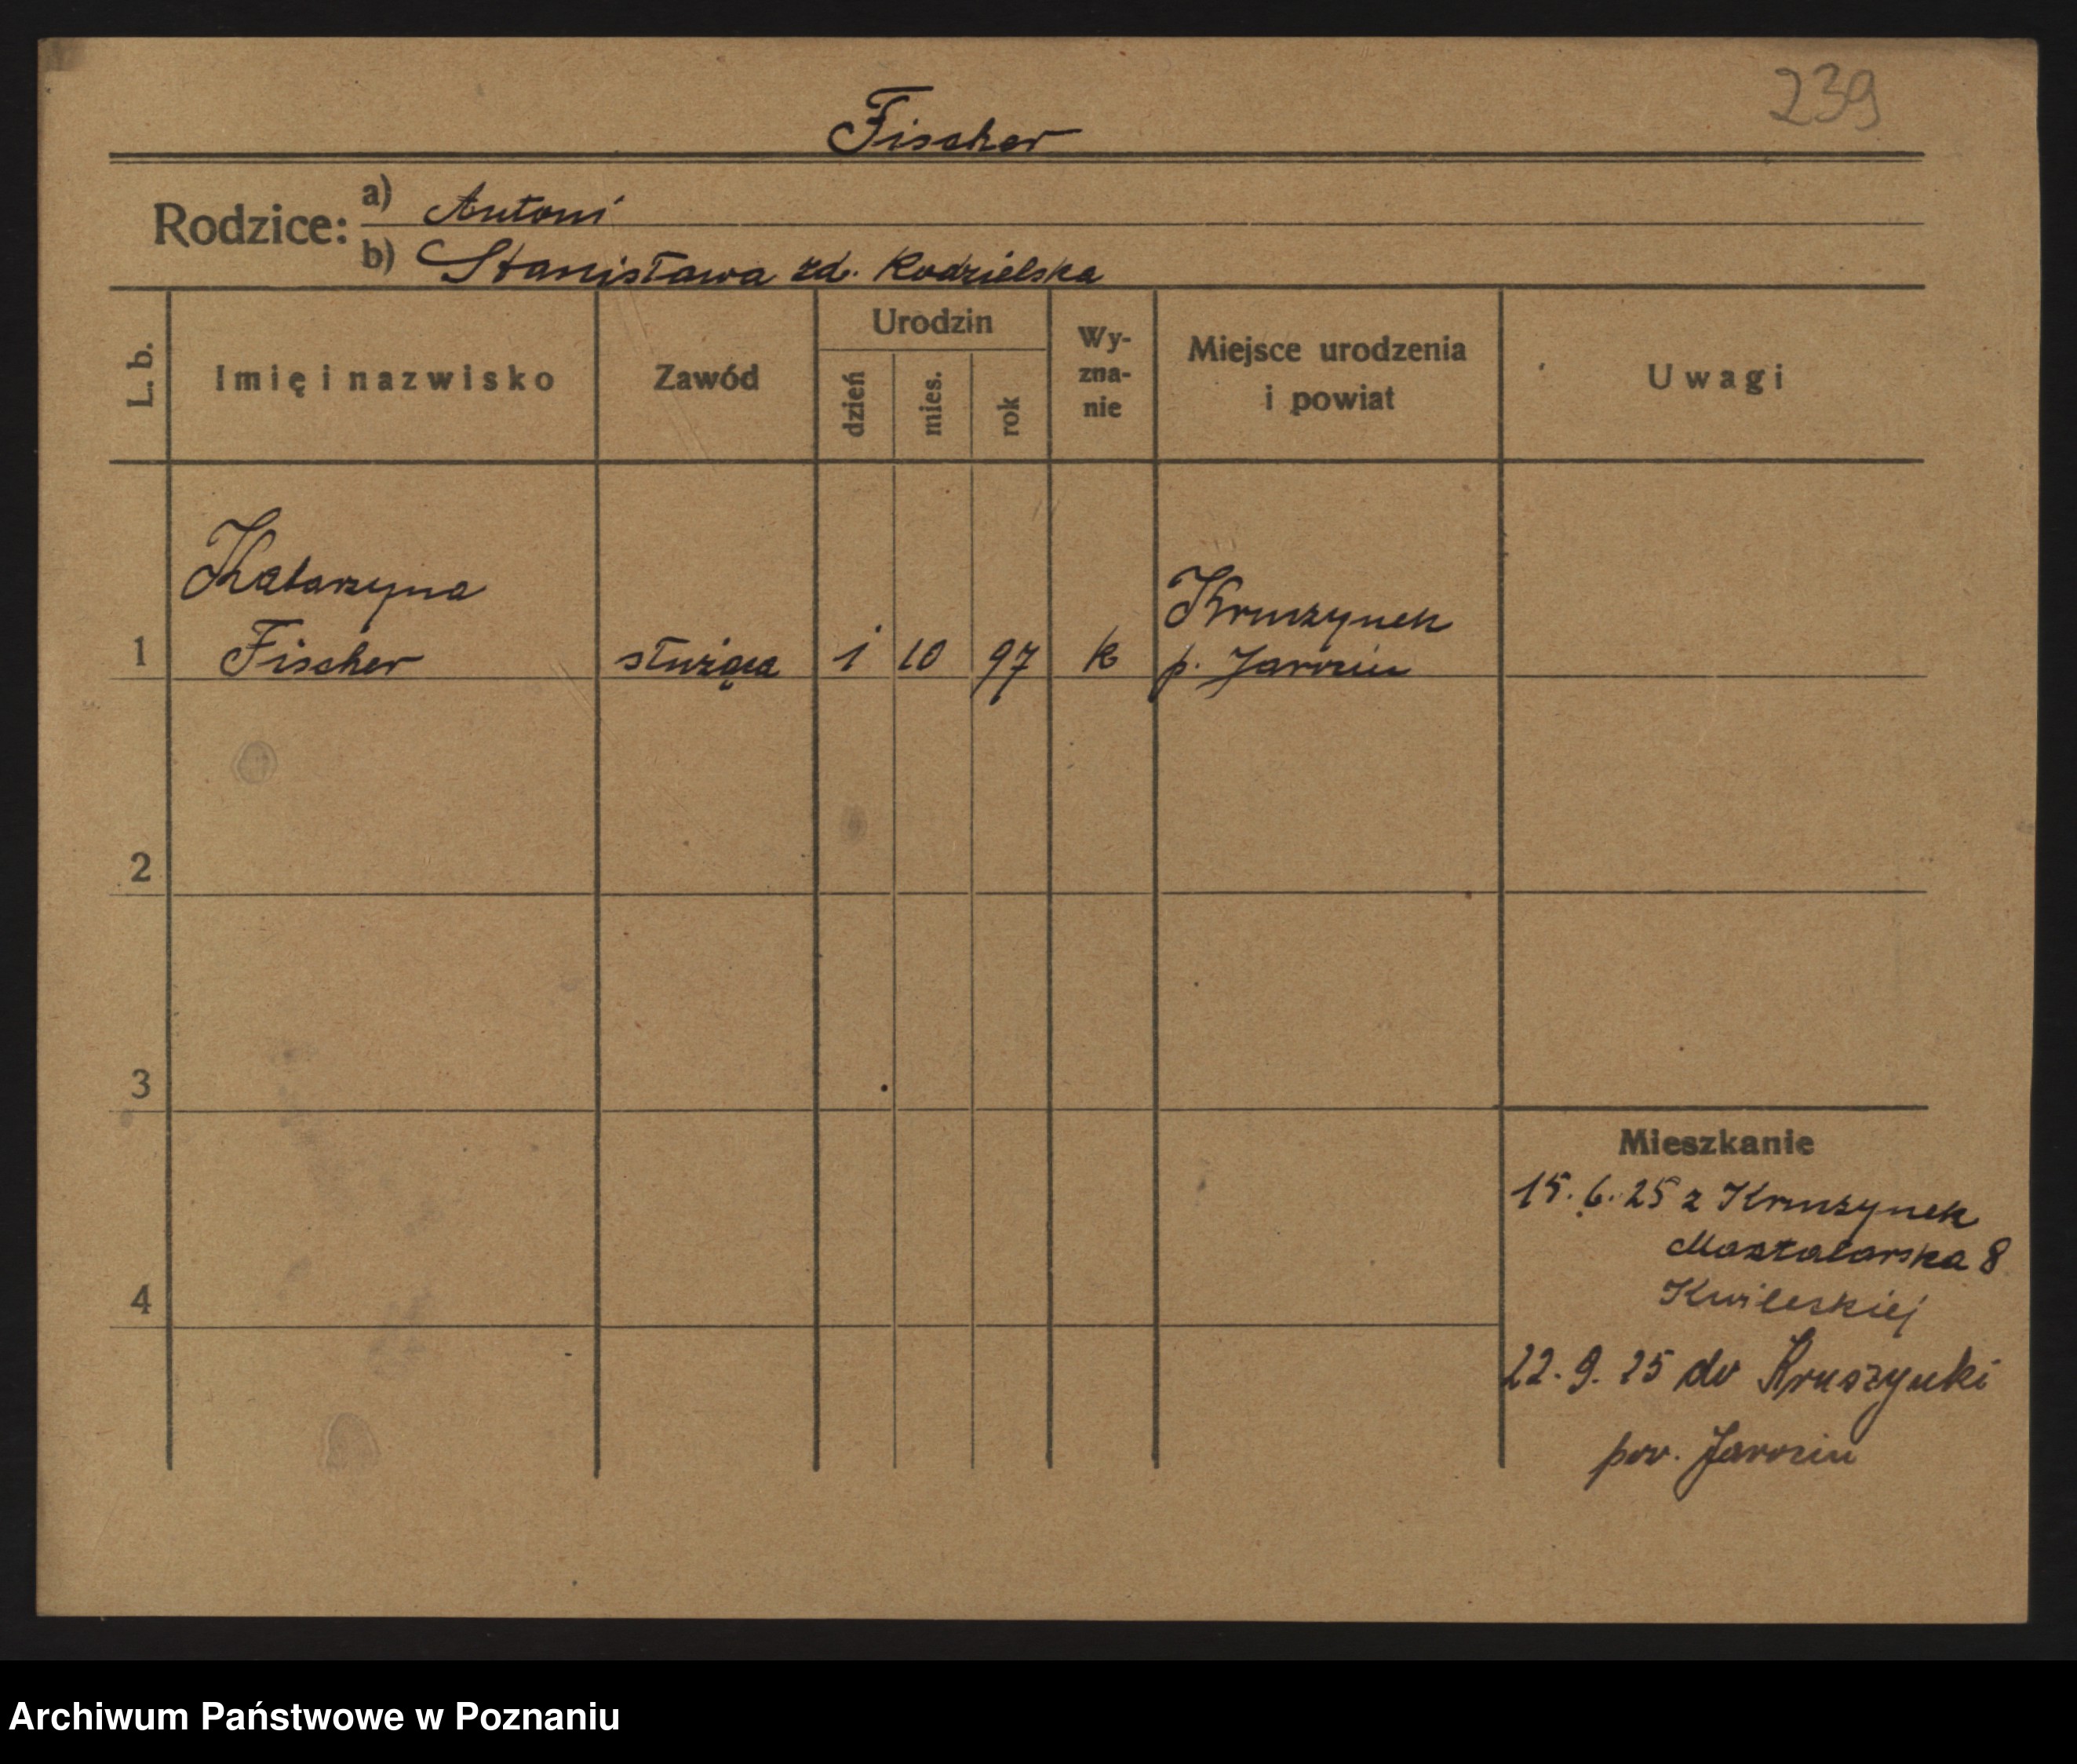 239
Fischer
Rodzice:
a) Antoni
b) Stanisława zd. Kodzielska
L. b.
Imię i nazwisko
Zawód
Urodzin
dzień
mies.
rok
Wy-
zna-
nie
Miejsce urodzenia
i powiat
Uwagi
Katarzyna
1 Fischer służąca 1 10 97 k
Kruszynek
p. Jarocin
2
3
4
Mieszkanie
15. 6. 25 z Kruszynek
Masztalarska 8
Kwileckiej
22. 9. 25 do Kruszynki
pow. Jarocin
Archiwum Państwowe w Poznaniu